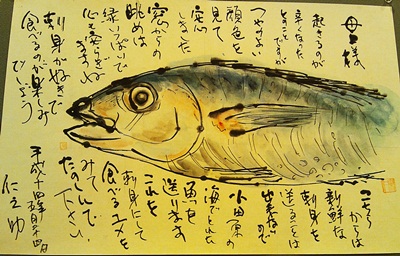 母上様
起きるのが
辛くなった
とのことですが
つやのよい
顔色を
見て
安心
しました
窓からの
眺めは
緑いっぱいで
心も安らぎ
ますね
刺身が好きで
食べるのが楽しみ
でしょう
こちらからは
新鮮な
刺身を
送ることは
出来ないので
小田原の
海でとれた
魚を
送ります
これを
刺身にして
食べるユメを
みて
たのしんで
下さい
平成十四年
仁之助